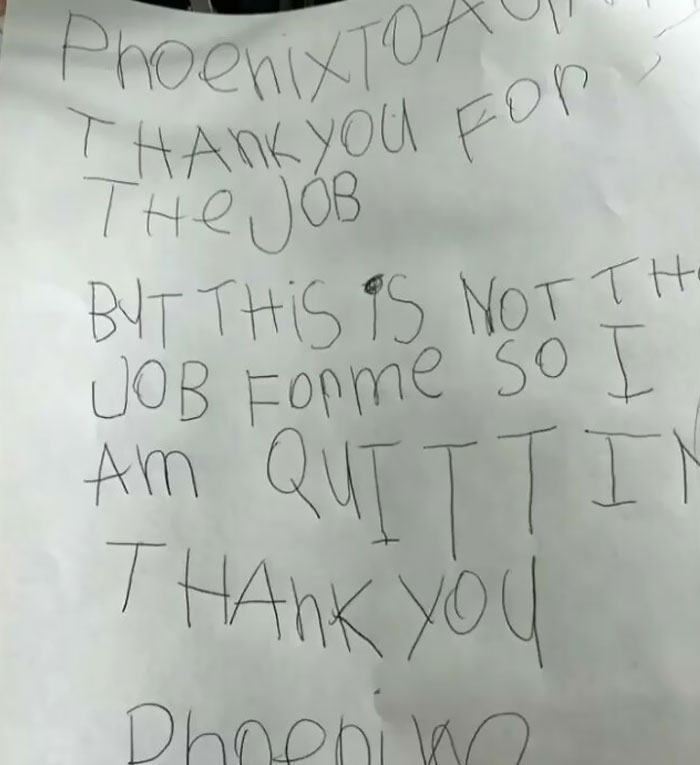 PhoenixTOA
THAnKYOU FOR
THe JOB
BUT THiS iS NOT THe
JOB FORme SO I
Am QUITTIN
THAnKYOU
Phoenix